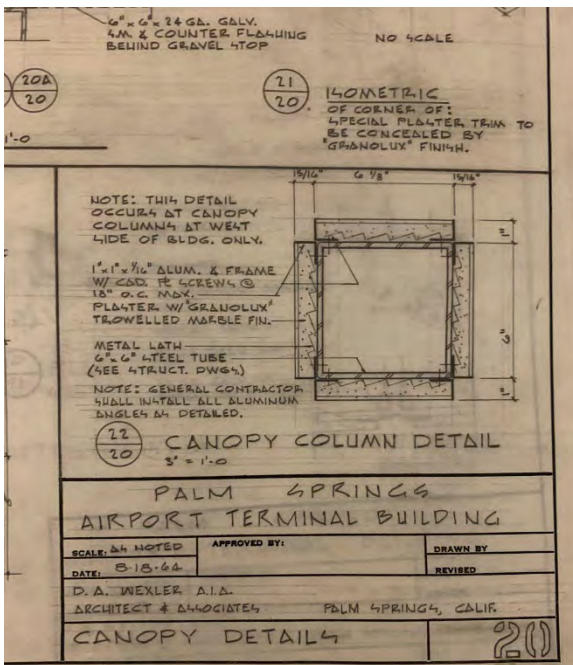 6" x 6" x 24 GA. GALV.
S.M. & COUNTER FLASHING
BEHIND GRAVEL STOP
NO SCALE
20A
20
21
20
ISOMETRIC
OF CORNER OF:
SPECIAL PLASTER TRIM TO
BE CONCEALED BY
"GRANOLUX" FINISH.
1'-0
15/16" 6 1/8" 15/16"
NOTE: THIS DETAIL
OCCURS AT CANOPY
COLUMNS AT WEST
SIDE OF BLDG. ONLY.
1"
1"x1"x1/16" ALUM. & FRAME
W/ CAD. PL SCREWS @
18" O.C. MAX.
PLASTER W/ "GRANOLUX"
TROWELLED MARBLE FIN.
6"
METAL LATH
6"x6" STEEL TUBE
(SEE STRUCT. DWGS.)
1"
NOTE: GENERAL CONTRACTOR
SHALL INSTALL ALL ALUMINUM
ANGLES AS DETAILED.
22
20
CANOPY COLUMN DETAIL
3" = 1'-0
PALM SPRINGS
AIRPORT TERMINAL BUILDING
SCALE: AS NOTED APPROVED BY: DRAWN BY
DATE: 8-18-64 REVISED
D. A. WEXLER A.I.A.
ARCHITECT & ASSOCIATES PALM SPRINGS, CALIF.
CANOPY DETAILS 20